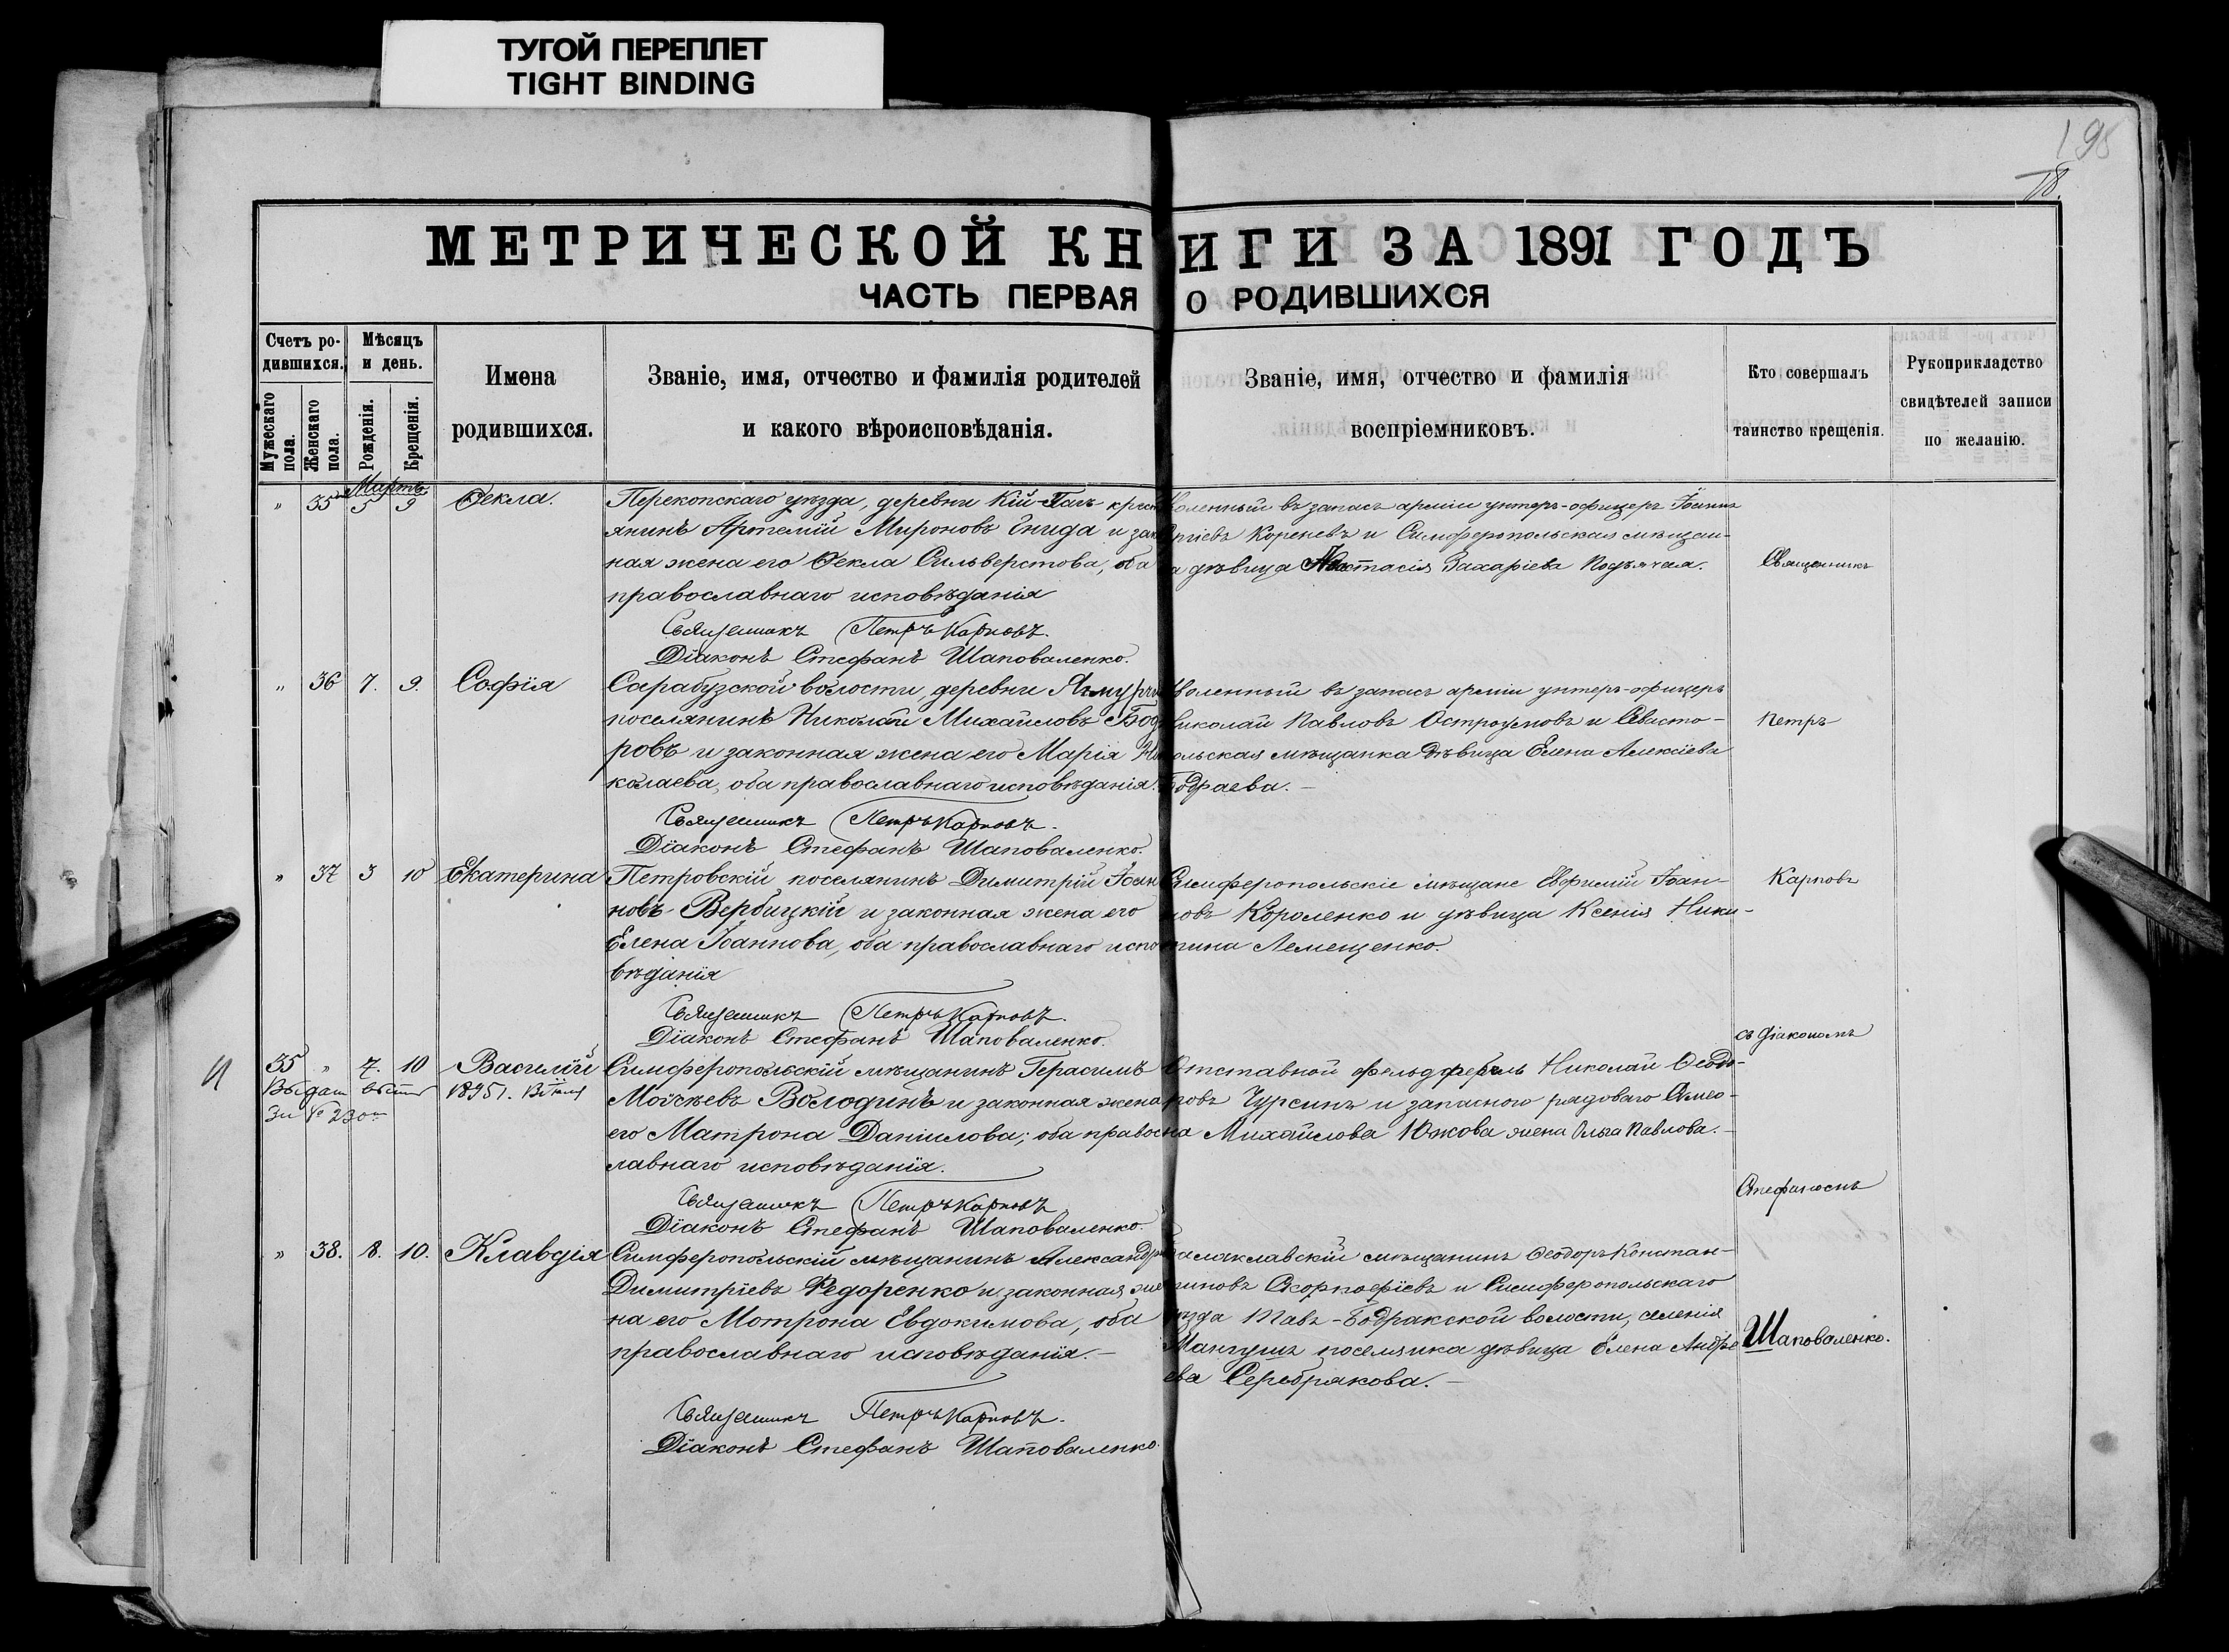 ТУГОЙ ПЕРЕПЛЕТ
TIGHT BINDING
195
18.
МЕТРИЧЕСКОЙ КНИГИ ЗА 1891 ГОДЪ
ЧАСТЬ ПЕРВАЯ О РОДИВШИХСЯ
Счетъ ро-
дившихся.
Мужескаго пола.
Женскаго пола.
Мѣсяцъ
и день.
Рожденія.
Крещенія.
Имена
родившихся.
Званіе, имя, отчество и фамилія родителей
и какого вѣроисповѣданія.
Званіе, имя, отчество и фамилія
воспріемниковъ.
Кто совершалъ
таинство крещенія.
Рукоприкладство
свидѣтелей записи
по желанію.
Мартъ
" 35 5 9 Ѳекла.
Перекопскаго уѣзда, деревни Кій-Тагъ крест
янинъ Артемій Мироновъ Гнида и закон
ная жена его Ѳекла Сильверстова, оба
православнаго исповѣданія
Священникъ Петръ Карповъ.
Діаконъ Стефанъ Шаповаленко.
воленный въ запасъ арміи унтеръ-офицеръ Іоаннъ
ргіевъ Кореневъ и Симферопольская мѣщан-
ка дѣвица Анастасія Захаріева Подъячая.
Священникъ
" 36 7. 9. Софія
Сарабузской волости, деревни
поселянинъ Николай Михаиловъ Бод
ровъ и законная жена его Марія Ни
колаева, оба православнаго исповѣданія.
Священникъ Петръ Карповъ.
Діаконъ Стефанъ Шаповаленко.
воленный въ запасъ арміи унтеръ-офицеръ
Николай Павловъ Остроумовъ и Севасто-
польская мѣщанка дѣвица Елена Алексіева
Бодраева.
Петръ
" 37 3 10 Екатерина
Петровскій поселянинъ Димитрій Іоан
новъ Вербицкій и законная жена его
Елена Іоаннова, оба православнаго испо
вѣданія
Священникъ Петръ Карповъ.
Діаконъ Стефанъ Шаповаленко.
Симферопольскіе мѣщане Евфимій Іоан-
новъ Короленко и дѣвица Ксенія Ники-
тина Лемещенко.
Карповъ
съ діакономъ
35 " 7. 10 Василій
за № 230
Симферопольскій мѣщанинъ Герасимъ
Моисѣевъ Володинъ и законная жена
его Матрона Даніилова; оба правос
лавнаго исповѣданія.
Священникъ Петръ Карповъ
Діаконъ Стефанъ Шаповаленко.
Отставной фельдфебель Николай Ѳеодо-
ровъ Чурсинъ и запаснаго рядоваго
на Михайлова Южкова жена Ольга Павлова.
Стефаномъ
" 38. 8. 10. Клавдія
Симферопольскій мѣщанинъ Александръ
Димитріевъ Федоренко и законная же
на его Мотрона Евдокимова, оба
православнаго исповѣданія.
Священникъ Петръ Карповъ.
Діаконъ Стефанъ Шаповаленко.
Балаклавскій мѣщанинъ Ѳеодоръ Констан-
тиновъ и Симферопольскаго
уѣзда Тавъ-Бодракской волости, селенія
Мангушъ поселянка дѣвица Елена Андре
ева Серебрякова.
Шаповаленко.